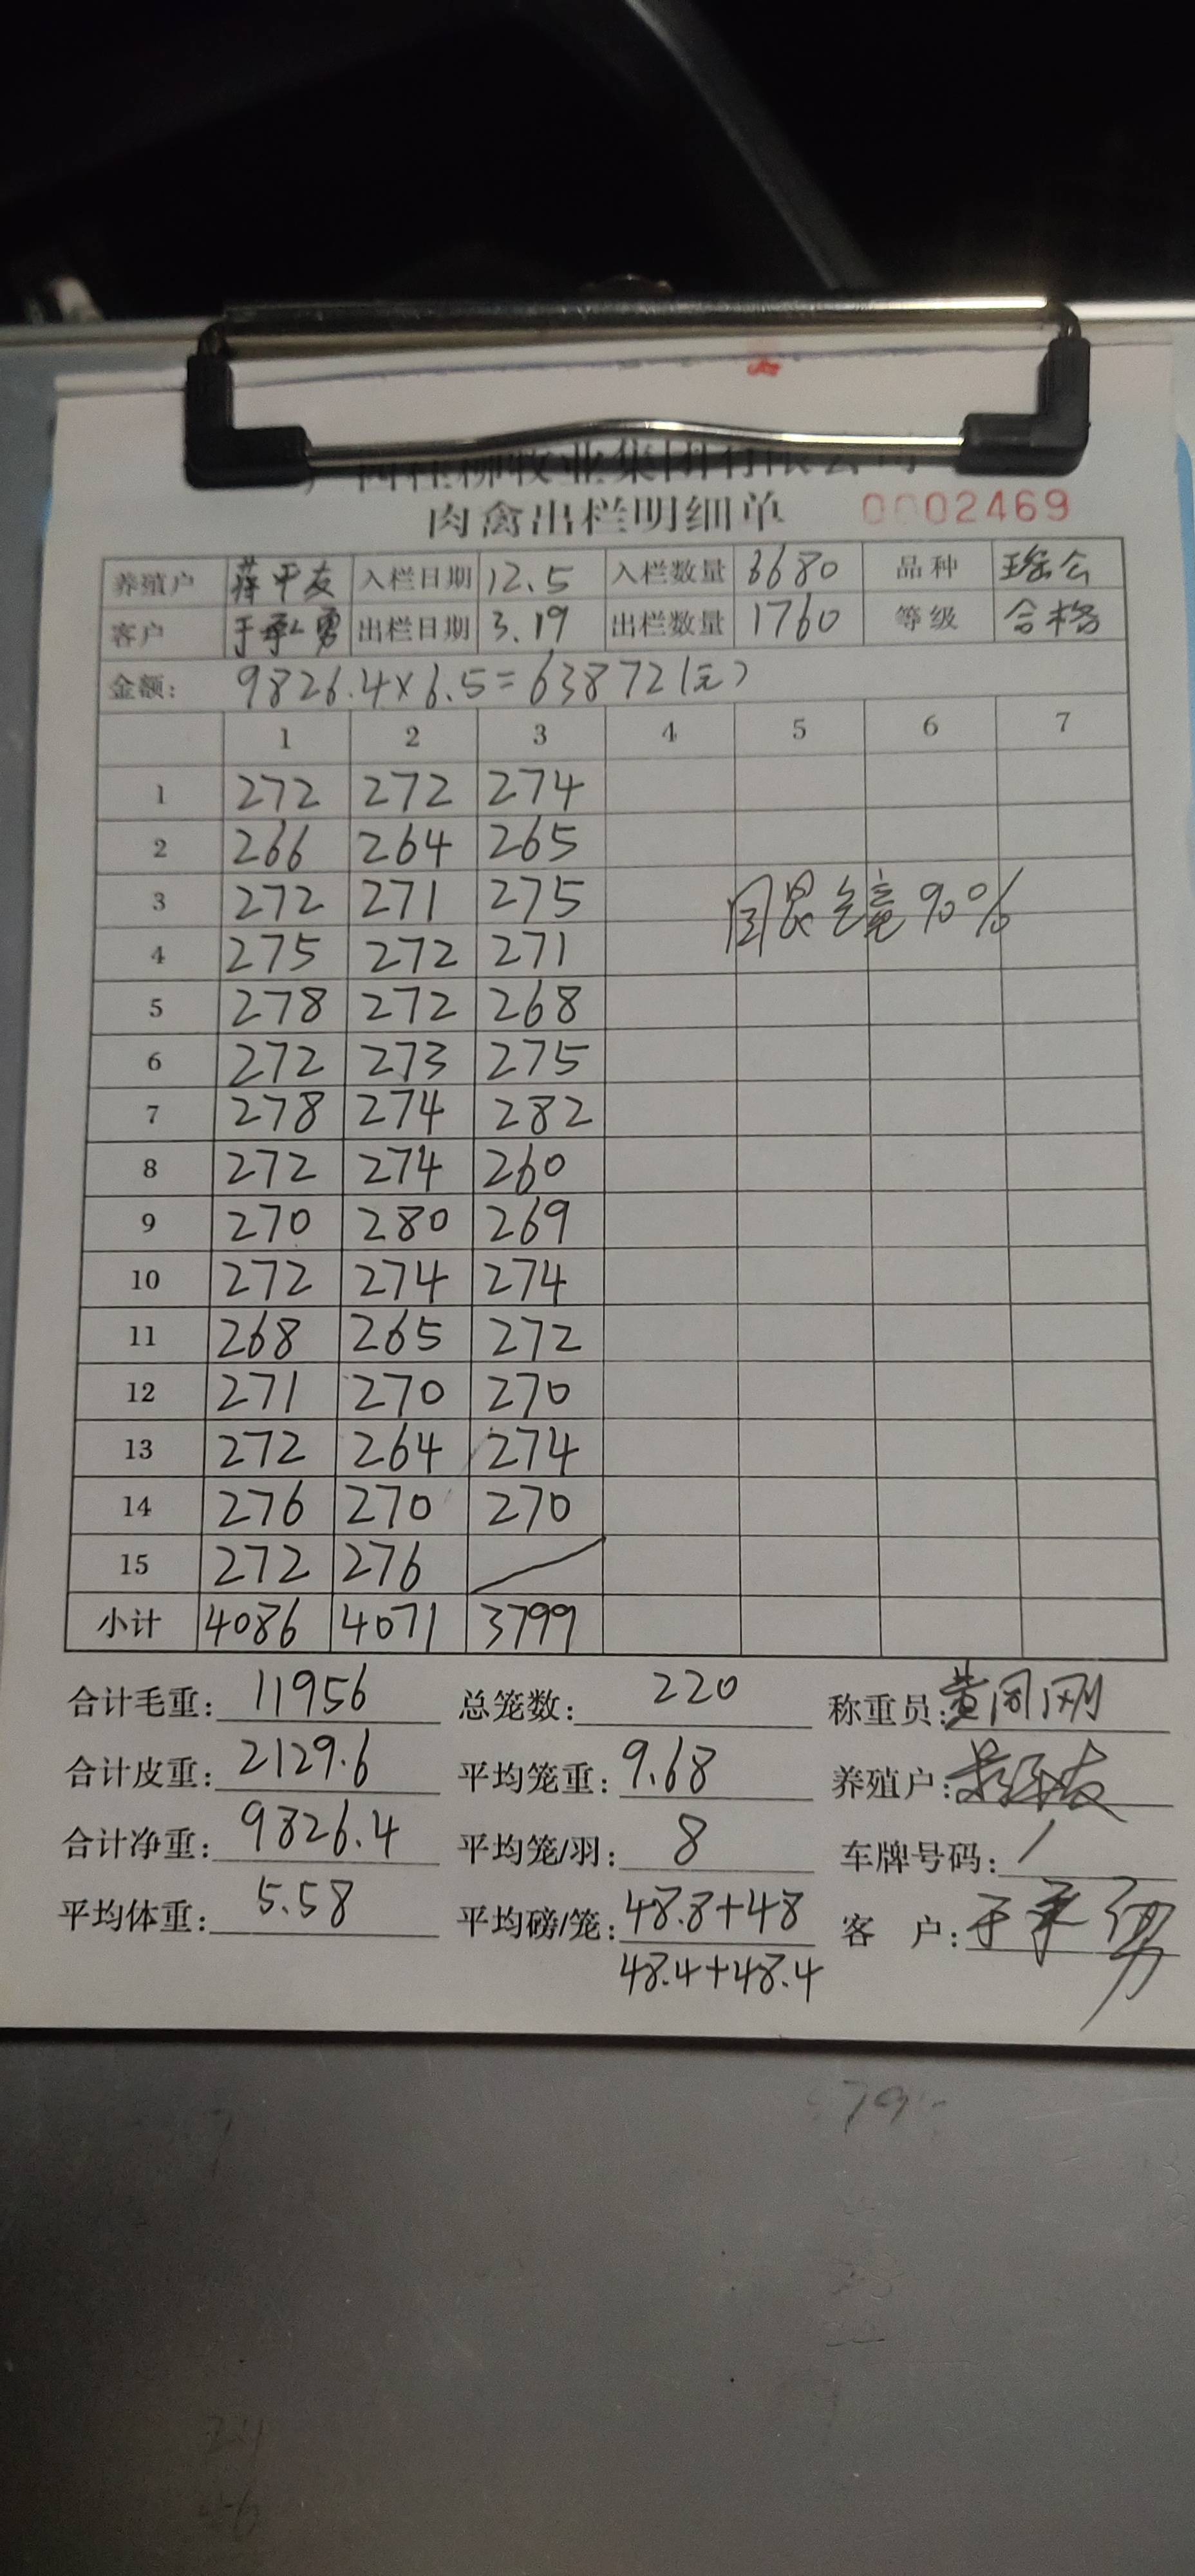 肉禽出栏明细单 0002469
养殖户 蒋平友 入栏日期 12.5 入栏数量 3680 品种 瑶公
客户 于承勇 出栏日期 3.19 出栏数量 1760 等级 合格
金额: 9826.4×6.5=63872(元)
1 2 3 4 5 6 7
1 272 272 274
2 266 264 265
3 272 271 275
90%
4 275 272 271
5 278 272 268
6 272 273 275
7 278 274 282
8 272 274 260
9 270 280 269
10 272 274 274
11 268 265 272
12 271 270 270
13 272 264 274
14 276 270 270
15 272 276
小计 4086 4071 3799
合计毛重: 11956 总笼数: 220 称重员:
合计皮重: 2129.6 平均笼重: 9.68 养殖户:
合计净重: 9826.4 平均笼/羽: 8 车牌号码: /
平均体重: 5.58 平均磅/笼: 48.8+48 客户: 于承勇
48.4+48.4